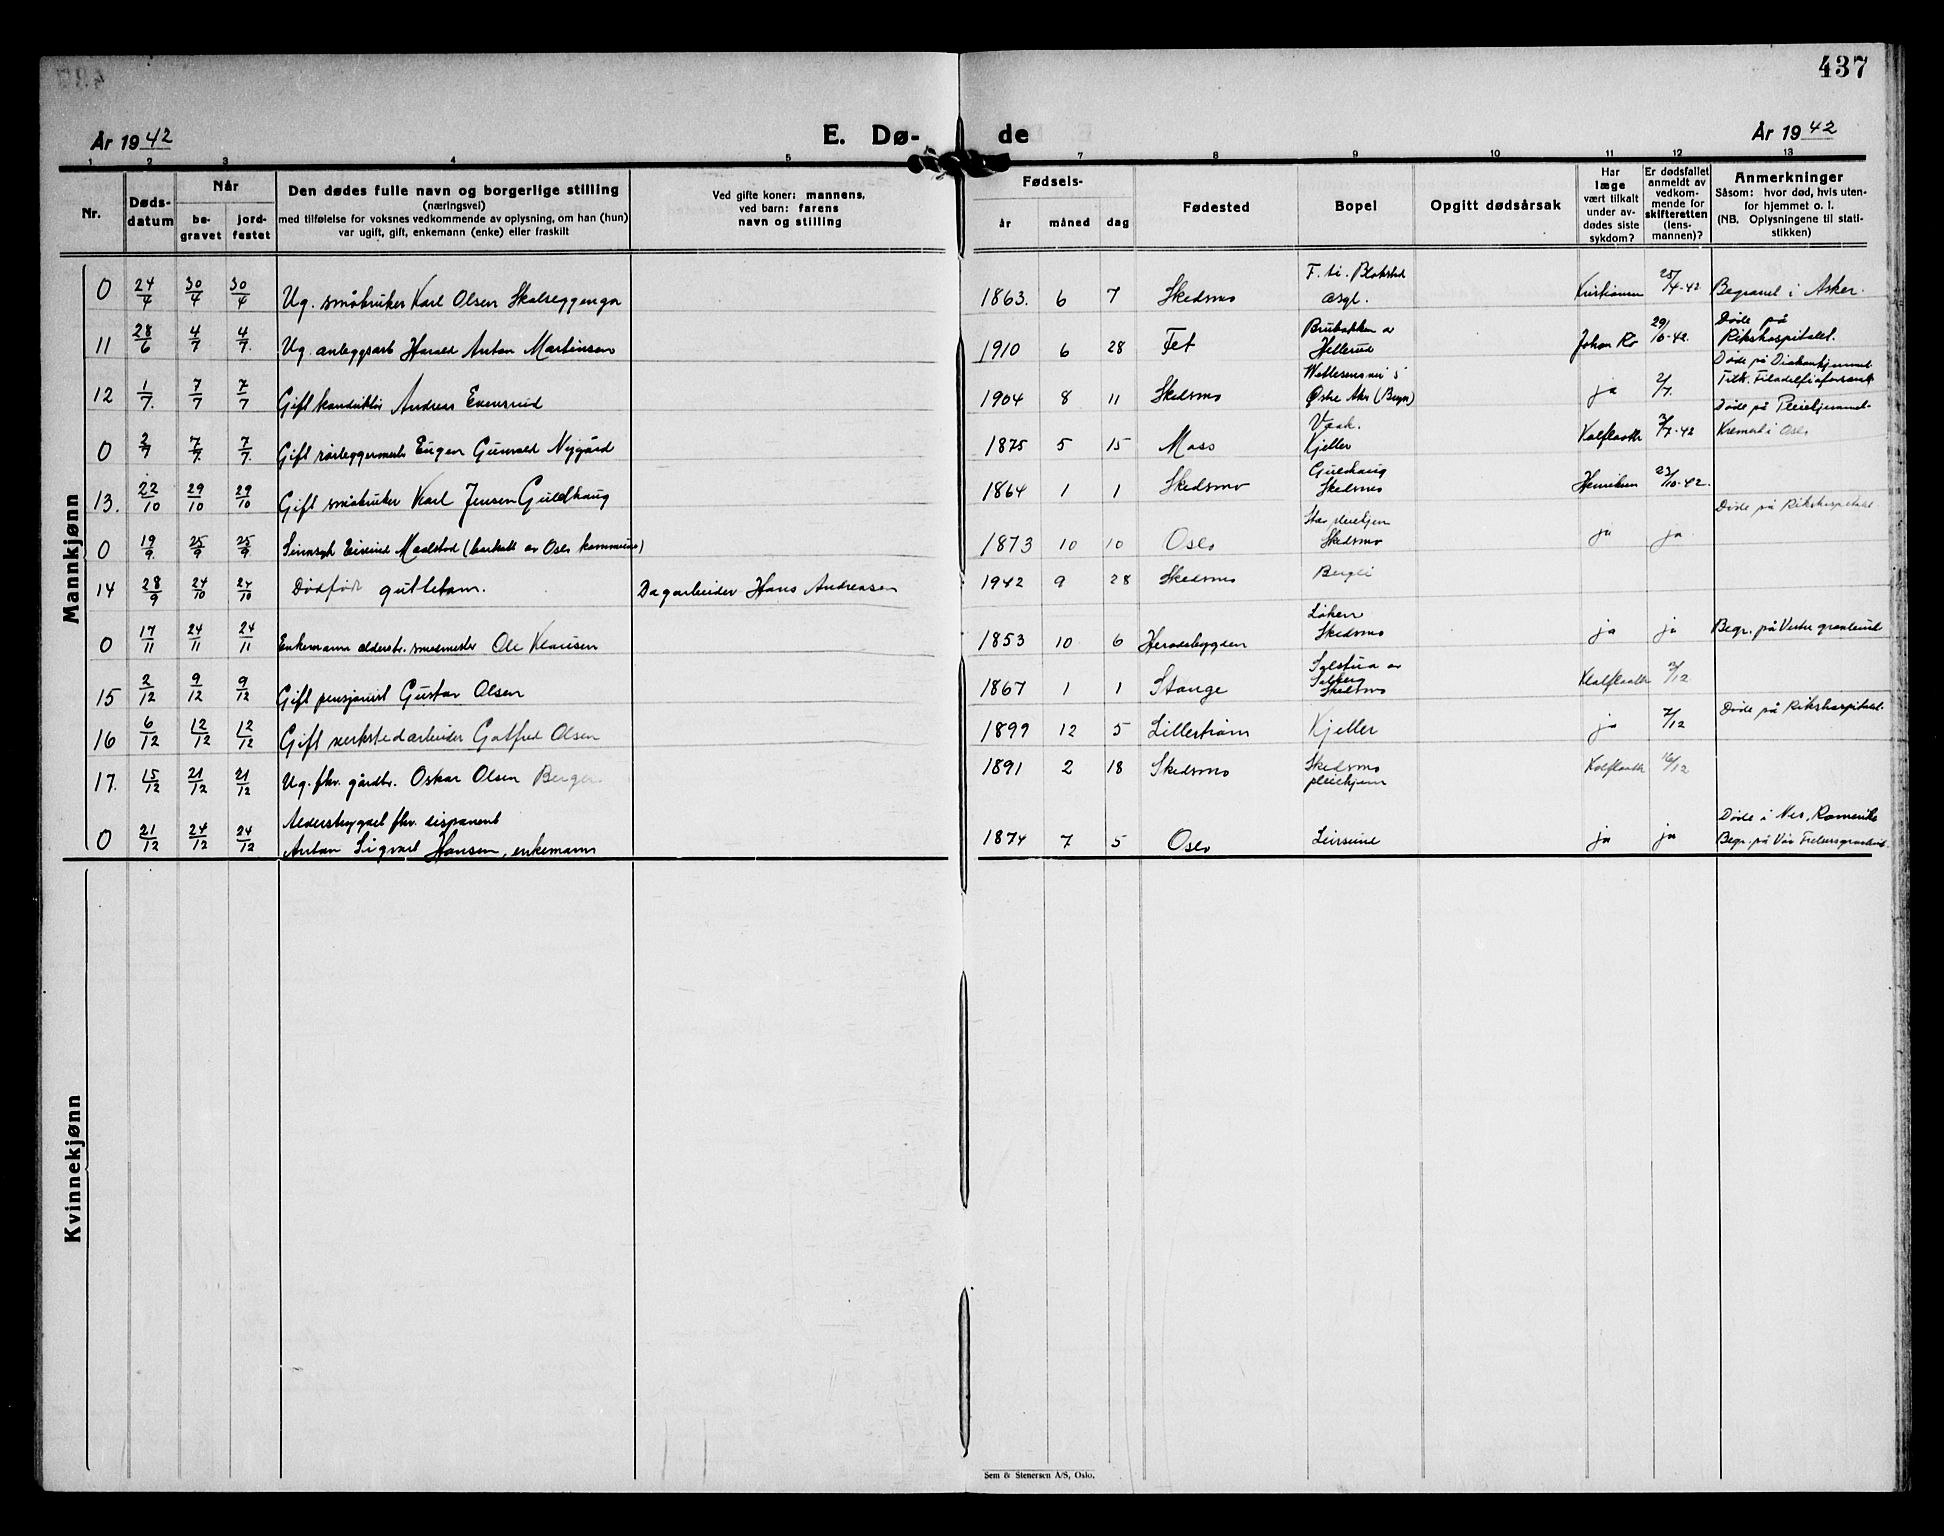 437
År 1942 E. Dø- de År 1942
1 2 3 4 5 7 8 9 10 11 12 13
Nr.
Døds-
datum
Når
be-
gravet
jord-
festet
Den dødes fulle navn og borgerlige stilling
(næringsvei)
med tilføielse for voksnes vedkommende av oplysning, om han (hun)
var ugift, gift, enkemann (enke) eller fraskilt
Ved gifte koner: mannens,
ved barn: farens
navn og stilling
Fødsels-
år måned dag
Fødested
Bopel
Opgitt dødsårsak
Har
læge
vært tilkalt
under av-
dødes siste
sykdom?
Er dødsfallet
anmeldt av
vedkom-
mende for
skifteretten
(lens-
mannen)?
Anmerkninger
Såsom: hvor død, hvis uten-
for hjemmet o. l.
(NB. Oplysningene til stati-
stikken)
Mannkjønn
0 24/4 30/4 30/4 Ug. småbruker Karl Olsen 1863. 6 7 Skedsmo Kristiansen Begravet i Asker.
11 28/6 4/7 4/7. Ug. anleggsarb Harald Anton Martinsen 1910 6 28 Fet Brubakken Hellerud 29/10-42. Døde på Rikshospitalet.
12 1/7. 7/7 7/7 Gift konduktør Andreas Evensrud 1904 8 11 Skedsmo Østre Aker ja 2/7. Døde på Diakonhjemmet
0 2/7 7/7. 7/7. Gift rørleggermester Eugen Gunvald Nygård 1875 5 15 Moss Kjeller Kalflaath Døde på Pleiehjemmet Kremert i Oslo
13. 22/10 29/10 29/10 Gift småbruker Karl Jensen Guldhaug 1864 1 1 Skedsmo Guldhaug Skedsmo Henriksen 23/10-42. Døde på Rikshospitalet.
0 19/9. 25/9 25/9. Sinnsyk Eivind Maalstad (forkatt av Oslo kommune) 1873 10 10 Oslo Skedsmo ja ja
14 28/9 24/10 24/10 Dødfødt guttebarn. Dagarbeider Hans Andreasen 1942 9 28 Skedsmo Bergli
0 17/11 24/11 24/11 Enkemann alderstr. smedmester Ole Klausen 1853 10 6 Løken Skedsmo ja ja Begr. på Vestre gravlund
15 2/12 9/12 9/12 Gift pensjonist Gustav Olsen 1867 1 1 Stange Solberg Skedsmo Kalflaath
16 6/12 12/12 12/12 Gift verkstedarbeider Gotfred Olsen 1899 12 5 Lillestrøm Kjeller ja 7/12 Døde på Rikshospitalet.
17. 15/12 21/12 21/12 Ug. fhv. gårdbr. Oskar Olsen Berger. 1891 2 18 Skedsmo Skedsmo pleiehjem Kalflaath 16/12
0 21/12 24/12 24/12 Alderstrygdet fhv. disponent
Anton Sigvart Hansen, enkemann 1874 7 5 Oslo Leirsund ja ja Døde i Nes, Romerike
Begr. på Vår Frelsers gravlund.
Kvinnekjønn
Sem & Stenersen A/S, Oslo.